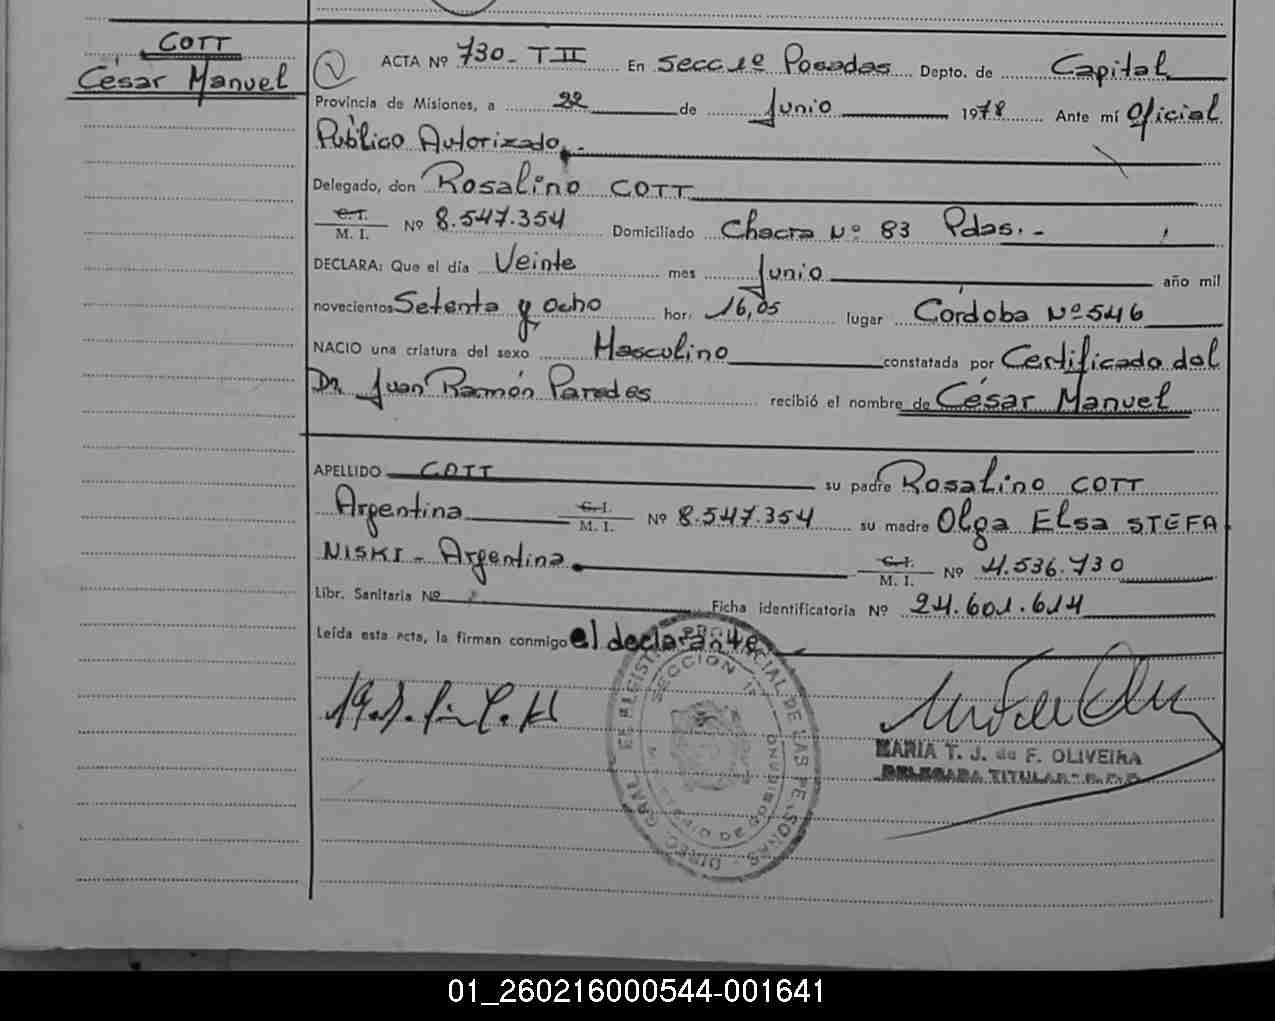 COTT
César Manuel
ACTA Nº 730 - T II En Secc 1º Posadas Depto. de Capital
Provincia de Misiones, a 22 de Junio 1978 Ante mí Oficial
Público Autorizado.-
Delegado, don Rosalino COTT
C.I. M. I. Nº 8.547.354 Domiciliado Chacra Nº 83 Pdas.-
DECLARA: Que el día Veinte mes Junio año mil
novecientos Setenta y ocho hor. 16,05 lugar Córdoba Nº 546
NACIO una criatura del sexo Masculino constatada por Certificado del
Dr. Juan Ramón Paredes recibió el nombre de César Manuel
APELLIDO COTT su padre Rosalino COTT
Argentina C.I. M. I. Nº 8.547.354 su madre Olga Elsa STEFA
NISKI - Argentina. C.I. M. I. Nº 4.536.730
Libr. Sanitaria Nº Ficha identificatoria Nº 24.601.614
Leída esta acta, la firman conmigo el declarante
DIREC. GRAL. DE REGISTRO PROVINCIAL DE LAS PERSONAS
SECCION 1ª
MARIA T. J. de F. OLIVEIRA
DELEGADA TITULAR - R.P.P.
01_260216000544-001641